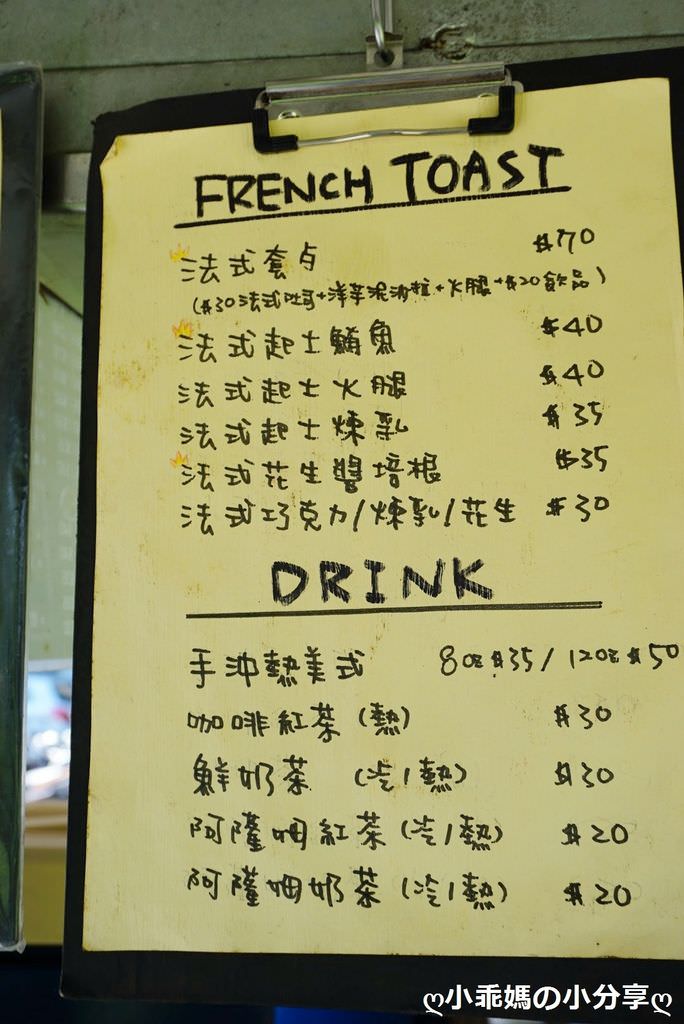 FRENCH TOAST
法式套点 $70
($30法式吐司+洋芋泥沙拉+火腿+$20飲品)
法式起士鮪魚 $40
法式起士火腿 $40
法式起士煉乳 $35
法式花生醬培根 $35
法式巧克力/煉乳/花生 $30
DRINK
手沖熱美式 8oz $35/12oz $50
咖啡紅茶(熱) $30
鮮奶茶 (冷/熱) $30
阿薩姆紅茶(冷/熱) $20
阿薩姆奶茶(冷/熱) $20
ღ小乖媽の小分享ღ